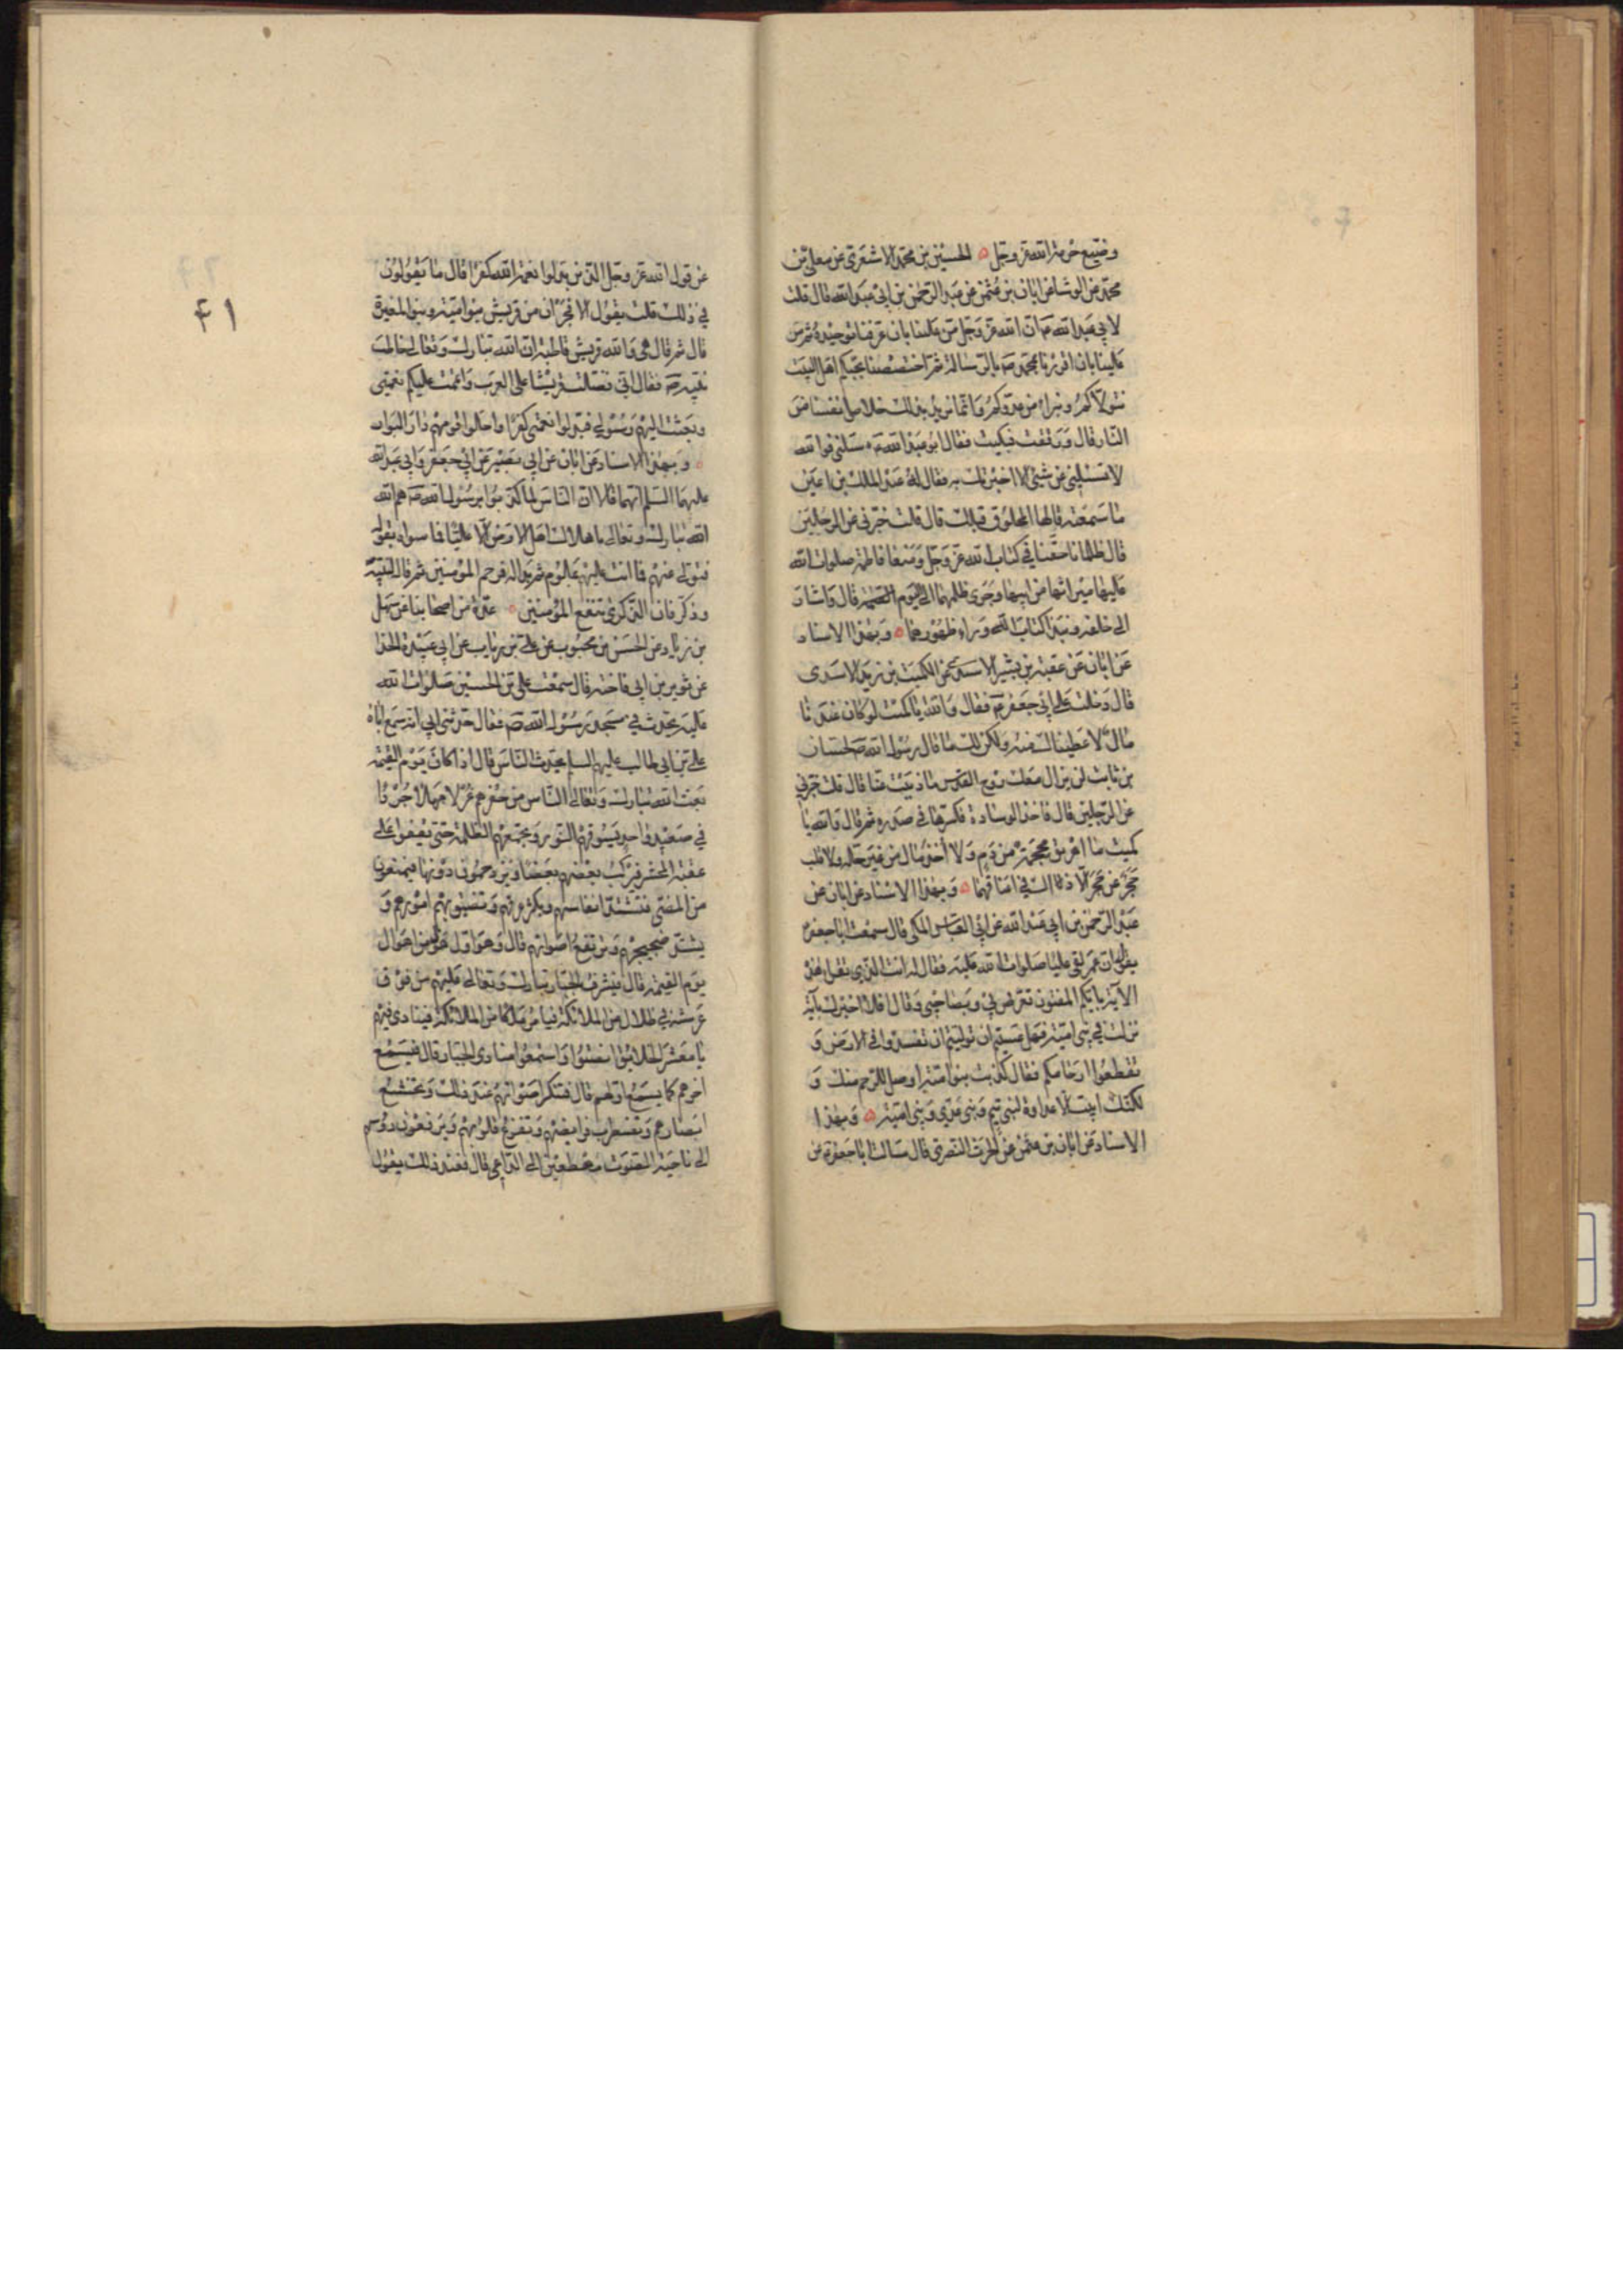 وضيع حرمة الله عز وجل ه الحسين بن محمد الاشعرى عن معلى بن
محمد عن الوشا عن ابان بن عثمن عن عبد الرحمن بن ابى عبد الله قال قلت
لابى عبد الله ع ان الله عز وجل من علينا بان عرفنا توحيده ثم من
علينا بان اقررنا بمحمد ص بالرسالة ثم اختصصنا بحبكم اهل البيت
نتولاكم ونبراء من عدوكم وانما نريد بذلك خلاص انفسنا من
النار قال ورققت فبكيت فقال ابو عبد الله ع سلنى فو الله
لا تسئلنى عن شئ الا اخبرتك به فقال له عبد الملك بن اعين
ما سمعته قالها لمخلوق قبلك قال قلت خبرنى عن الرجلين
قال ظلمانا حقنا فى كتاب الله عز وجل ومنعا فاطمة صلوات الله
عليها ميراثها من ابيها وجرى ظلمهما الى اليوم قال واشار
الى خلفه ونبذا كتاب الله وراء ظهورهما ه وبهذا الاسناد
عن ابان عن عقبة بن بشير الاسدى عن الكميت بن زيد الاسدى
قال دخلت على ابى جعفر ع فقال والله يا كميت لو كان عندنا
مال لاعطيناك منه ولكن لك ما قال رسول الله ص لحسان
بن ثابت لن يزال معك روح القدس ما ذببت عنا قال قلت خبرنى
عن الرجلين قال فاخذ الوسادة فكسرها فى صدره ثم قال والله يا
كميت ما اهريق محجمة من دم ولا اخذ مال من غير حله ولا قلب
حجر عن حجر الا ذاك فى اعناقهما ه وبهذا الاسناد عن ابان عن
عبد الرحمن بن ابى عبد الله عن ابى العباس المكى قال سمعت ابا جعفر ع
يقول ان عمر لقى عليا صلوات الله عليه فقال له انت الذى تقرا هذه
الاية بايكم المفتون تعرض بى وبصاحبى وقال افلا اخبرك باية
نزلت فى بنى امية فهل عسيتم ان توليتم ان تفسدوا فى الارض و
تقطعوا ارحامكم فقال كذبت بنو امية اوصل للرحم منك و
لكنك ابيت الا عداوة لبنى تيم وبنى عدى وبنى امية ه وبهذا
الاسناد عن ابان بن عثمن عن الحرث النصرى قال سالت ابا جعفر ع عن
۴۱
عن قول الله عز وجل الذين بدلوا نعمة الله كفرا قال ما يقولون
فى ذلك قلت يقول الافجران من قريش بنو امية وبنو المغيرة
قال ثم قال هى والله قريش قاطبة ان الله تبارك وتعالى خاطب
نبيه ص فقال انى فضلت قريشا على العرب واتممت عليكم نعمتى
وبعثت اليهم رسولى فبدلوا نعمتى كفرا واحلوا قومهم دار البوار
ه وبهذا الاسناد عن ابان عن ابى بصير عن ابى جعفر وابى عبد الله
عليهما السلم انهما قالا ان الناس لما كذبوا برسول الله ص هم الله
الله تبارك وتعالى باهلاك اهل الارض الا عليا فما سواه بقوله
فتول عنهم فما انت عليهم بملوم ثم بدا له فرحم المؤمنين ثم قال لنبيه
وذكر فان الذكرى تنفع المؤمنين ه عدة من اصحابنا عن سهل
بن زياد عن الحسن بن محبوب عن على بن رياب عن ابى عبيدة الحذا
عن ثوير بن ابى فاخته قال سمعت على بن الحسين صلوات الله
عليه يحدث فى مسجد رسول الله ص فقال حدثنى ابى انه سمع اباه
على بن ابى طالب عليه السلم يحدث الناس قال اذا كان يوم القيمة
بعث الله تبارك وتعالى الناس من حفرهم غرلا مهلا جردا
فى صعيد واحد يسوقهم النور ويجمعهم الظلمة حتى يقفوا على
عقبة المحشر فيركب بعضهم بعضا ويزدحمون دونها فيمنعون
من المضى فتشتد انفاسهم ويكثر عرقهم وتضيق بهم امورهم و
يشتد ضجيجهم وترتفع اصواتهم قال وهو اول هول من اهوال
يوم القيمة قال فيشرف الجبار تبارك وتعالى عليهم من فوق
عرشه فى ظلال من الملائكة فيامر ملكا من الملائكة فينادى فيهم
يا معشر الخلائق انصتوا واستمعوا منادى الجبار قال فيسمع
اخرهم كما يسمع اولهم قال فتنكسر اصواتهم عند ذلك وتخشع
ابصارهم وتضطرب فرايصهم وتفزع قلوبهم ويرفعون رؤسهم
الى ناحية الصوت مهطعين الى الداعى قال فعند ذلك يقول